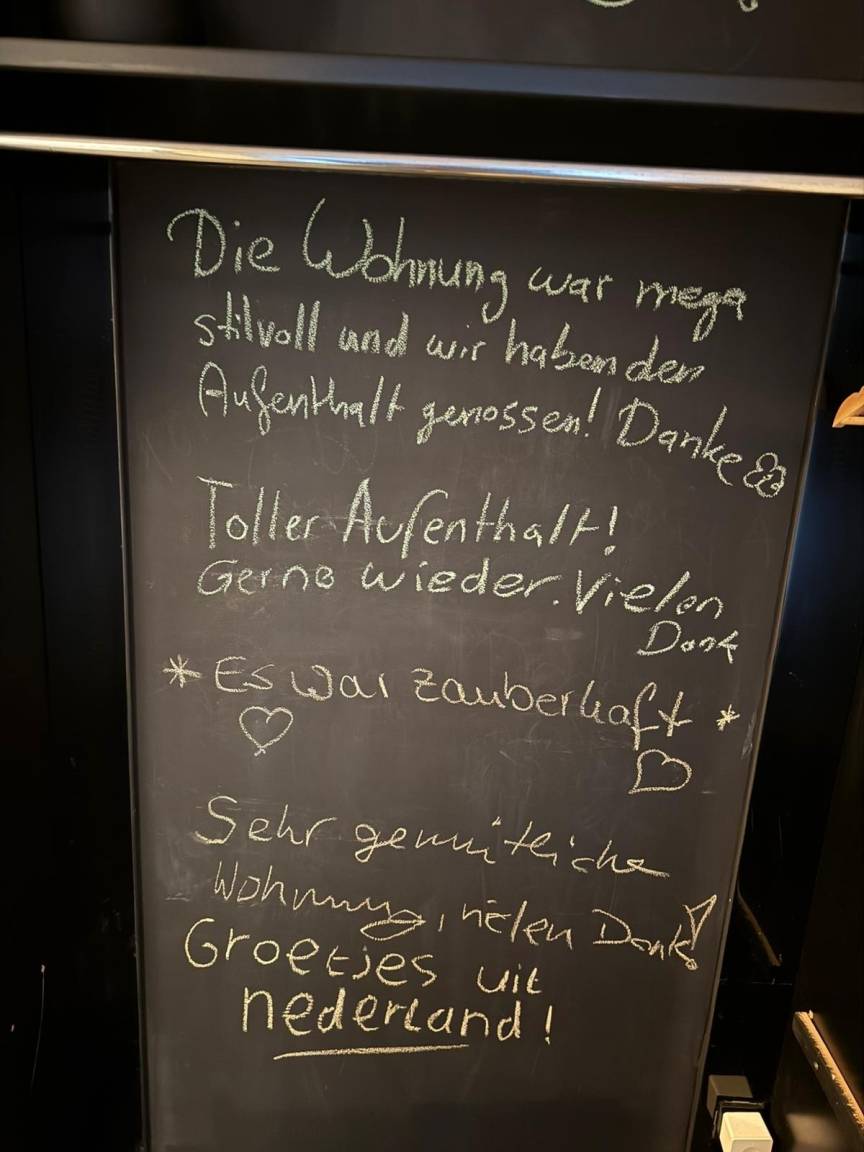 Die Wohnung war mega
stilvoll und wir haben den
Aufenthalt genossen! Danke
Toller Aufenthalt!
Gerne wieder. Vielen
Dank
* Es war zauberhaft *
Sehr gemütliche
Wohnung, vielen Dank!
Groetjes uit
nederland!